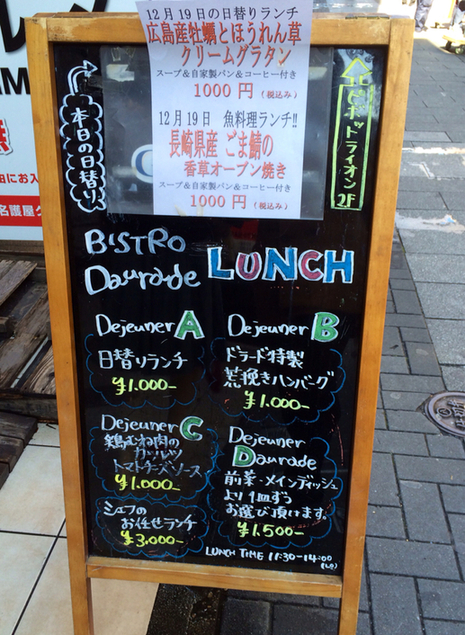 12月19日の日替りランチ
広島産牡蠣とほうれん草
クリームグラタン
スープ&自家製パン&コーヒー付き
1000円(税込み)
12月19日 魚料理ランチ!!
長崎県産 ごま鯖の
香草オーブン焼き
スープ&自家製パン&コーヒー付き
1000円(税込み)
本日の日替り
ビーボットライオン2F
BISTRO
Daurade
LUNCH
Dejeuner A
日替りランチ
¥1.000-
Dejeuner B
ドラード特製
荒挽きハンバーグ
¥1.000-
Dejeuner C
鶏むね肉の
カツレツ
トマトチーズソース
¥1.000-
Dejeuner
D Daurade
前菜・メインディッシュ
より1皿ずつ
お選び頂けます。
¥1.500-
シェフの
お任せランチ
¥3.000-
LUNCH TIME 11:30-14:00
(L.O)
にお入
名護屋